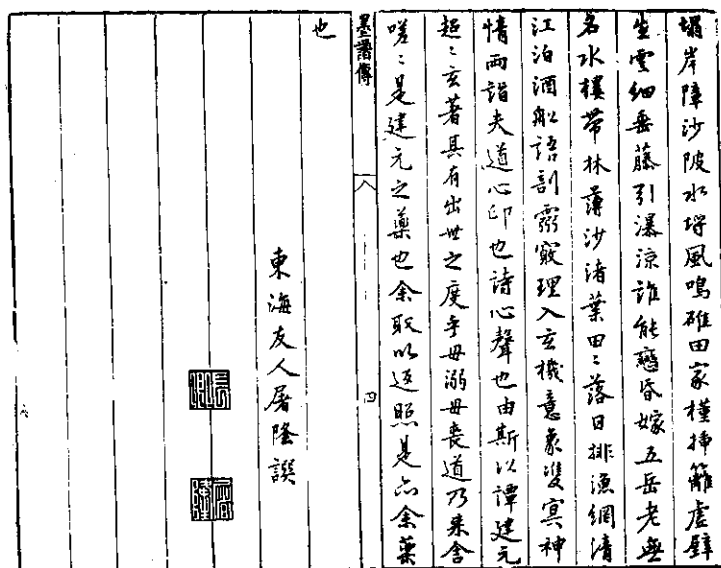 塌岸障沙陂水塝風鳴碓田家槿揷籬虛壁
生雲細垂藤引瀑涼誰能戀昏嫁五岳老無
名水樓帶林薄沙渚葉田〻落日排漁網清
江泊酒船語剖霛竅理入玄機意象雙冥神
情兩詣夫道心印也詩心聲也由斯以譚建元
超〻玄著其有出世之度乎毋溺毋喪道乃來舍
嗟〻是建元之藥也余取以返照是亦余藥
墨譜傳
八
四
也
東海友人屠隆譔